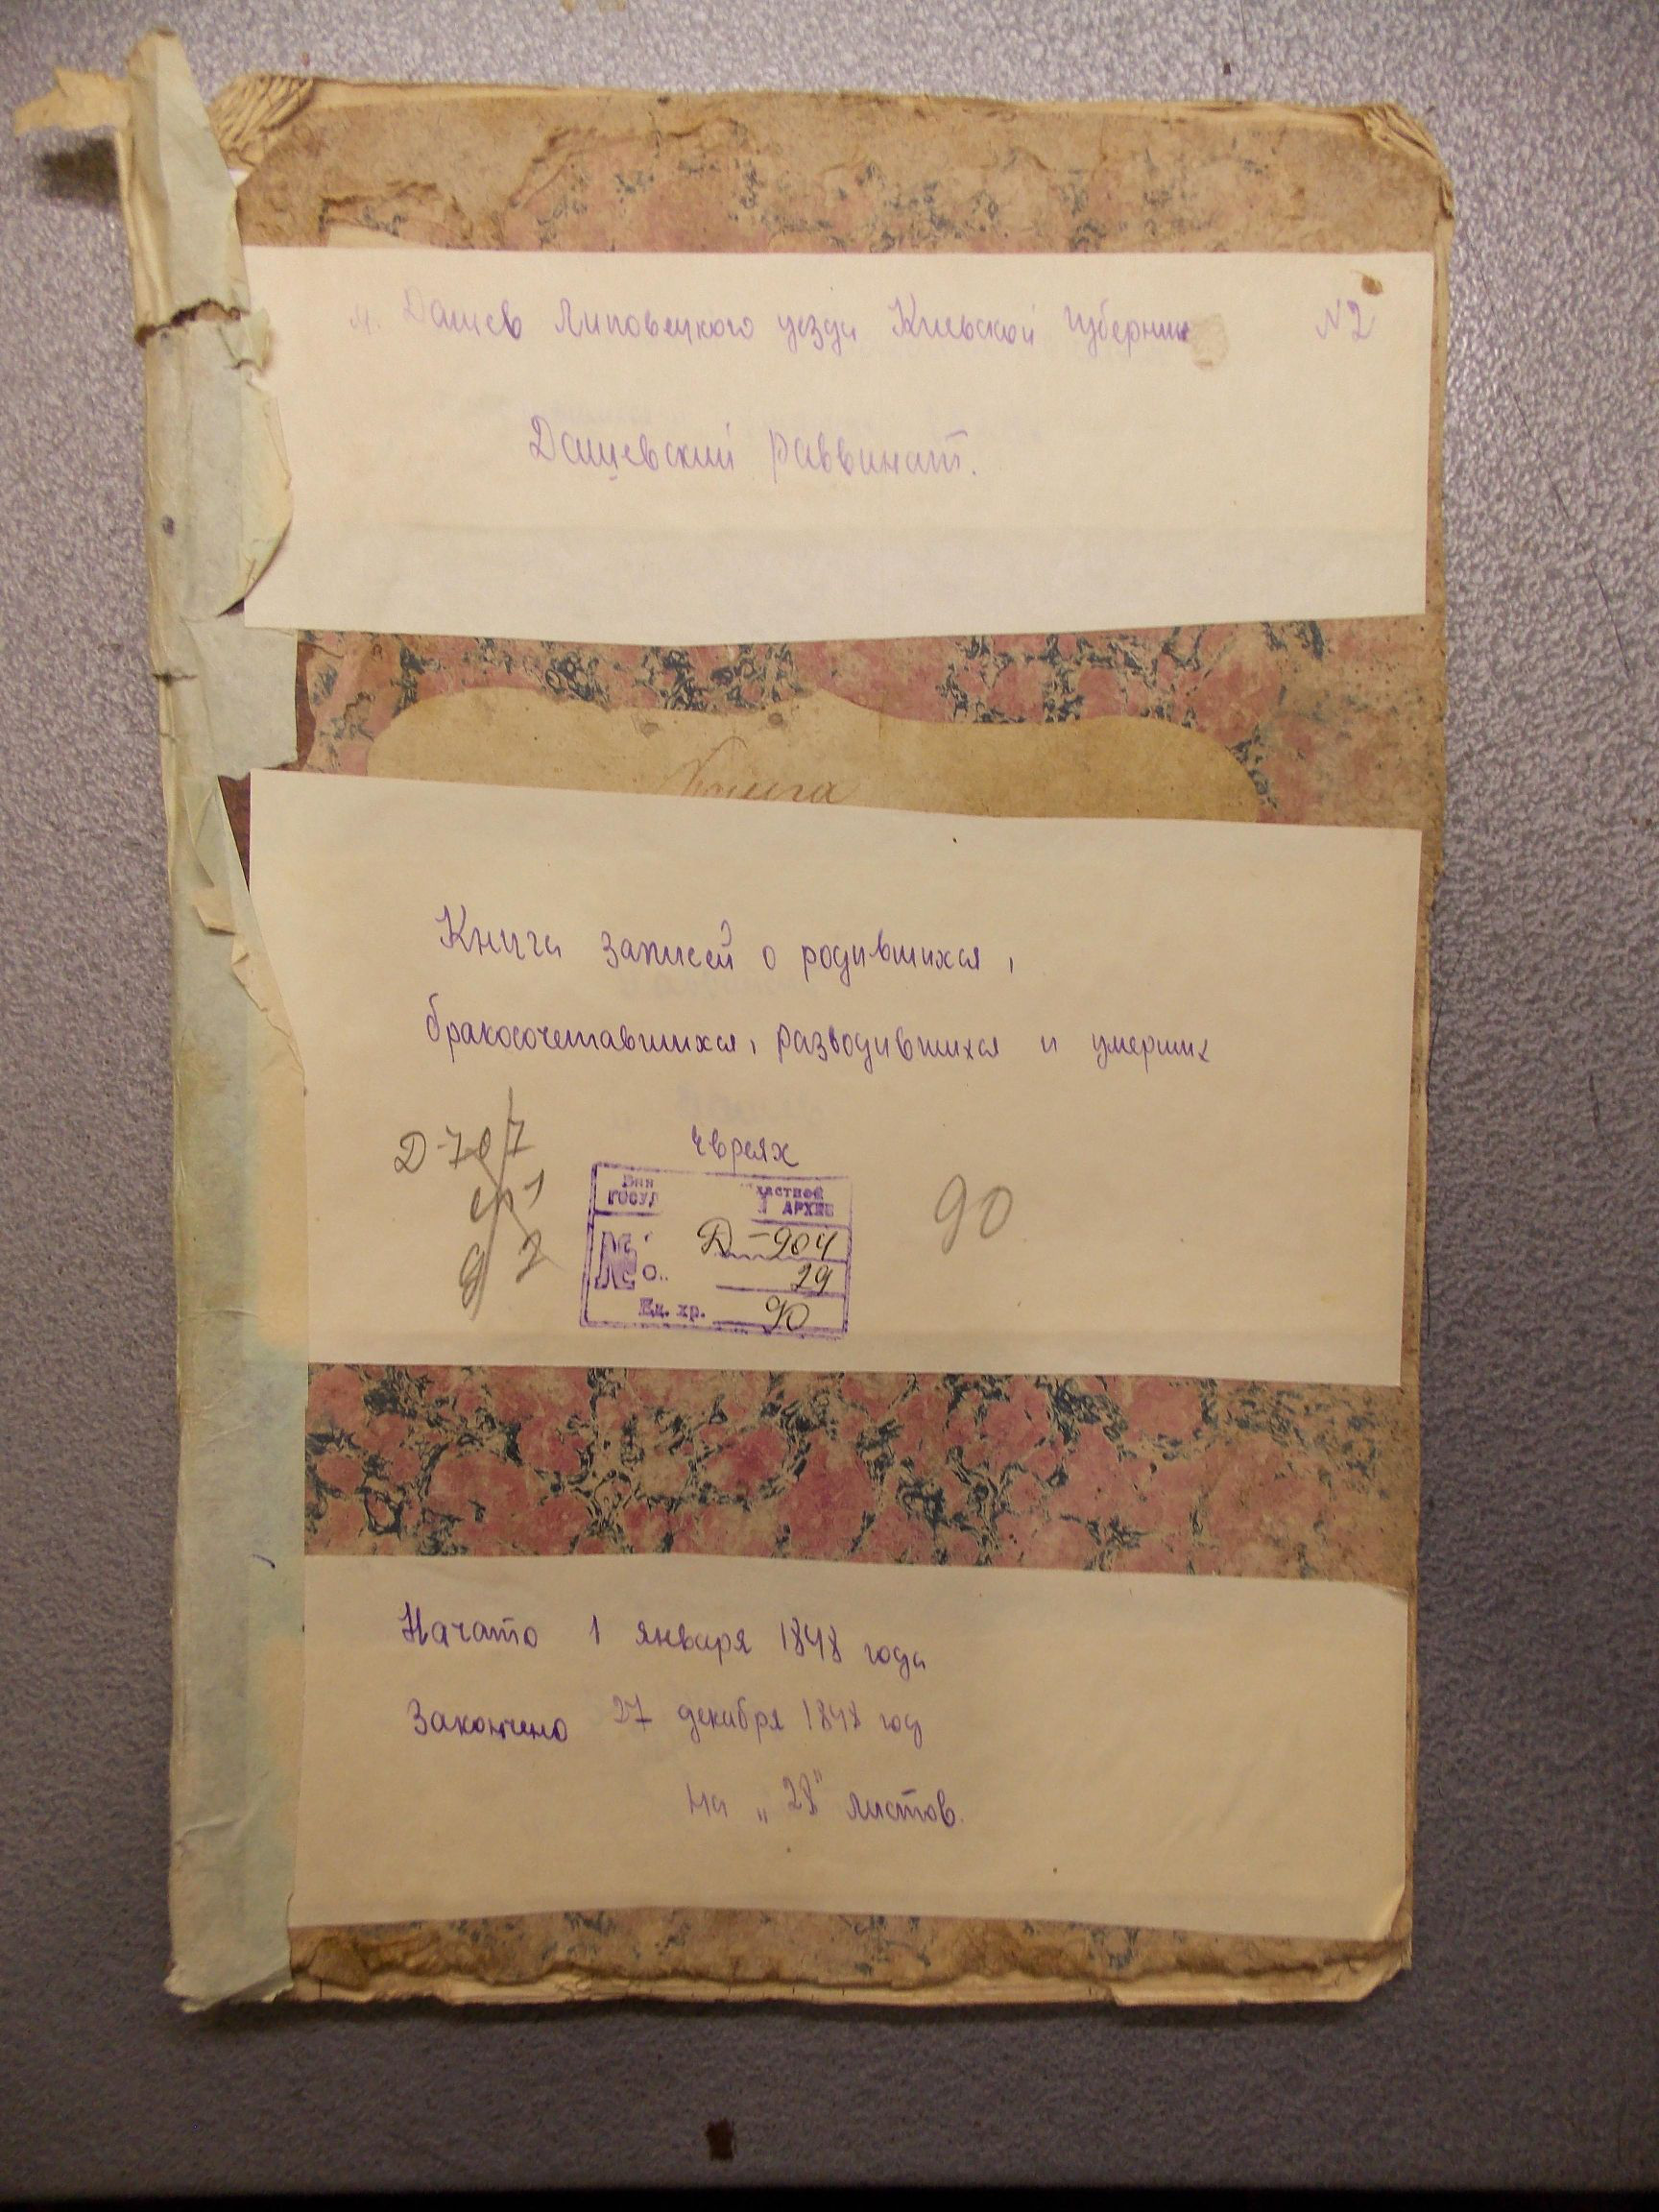 м. Дашев Липовецкого уезда Киевской губернии №2
Дашевский раввинат.
Книга
Книга записей о родившихся,
бракосочетавшихся, разводившихся и умерших
евреях
Д-707
оп 1
д 2
Вин астной
ГОСУД АРХИВ
Д-904
О. 29
Ед. хр. 90
90
Начато 1 января 1848 года
Закончено 27 декабря 1848 год
на „28" листов.